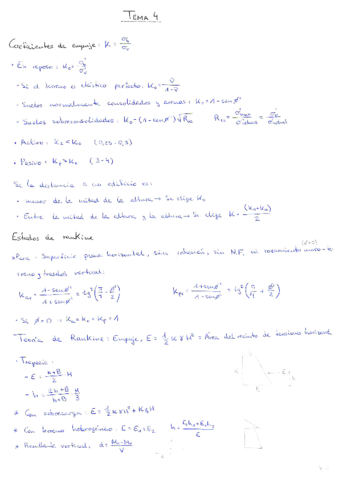 TEMA 4
Coeficientes de empuje: K = σh'/σv'
• En reposo: K₀ = σh'/σv'
- Si el terreno es elástico perfecto: K₀ = ν/(1-ν)
- Suelos normalmente consolidados y arenas: K₀ = 1 - senφ'
- Suelos sobreconsolidados: K₀ = (1 - senφ')√Roc
• Activo: Ka < K₀ (0,25 - 0,3)
• Pasivo: Kp > K₀ (3-4)
Si la distancia a un edificio es:
• menor de la mitad de la altura → Se elige K₀
• Entre la mitad de la altura y la altura → Se elige K = (Ka+K₀)/2
Estados de Rankine
Para: Superficie plana horizontal, sin cohesión, sin N.F, ni rozamiento muro-te
rreno y trasdós vertical:
Ka = (1-senφ')/(1+senφ') = tg²(π/4 - φ'/2) Kp = (1+senφ')/(1-senφ') = tg²(π/4 + φ'/2)
- Si φ=0 → Ka = K₀ = Kp = 1
Teoría de Rankine: Empuje, E = ½KγH² = Área del recinto de tensiones horizont.
• Trapecio:
- E = (b+B)/2 H
- h = (2b+B)/(b+B) H/3
* Con sobrecarga: E = ½KγH² + KqH
* Con terreno heterogéneo: E = E₁+E₂ h = (E₁h₁+E₂h₂)/E
* Resultante vertical: d =